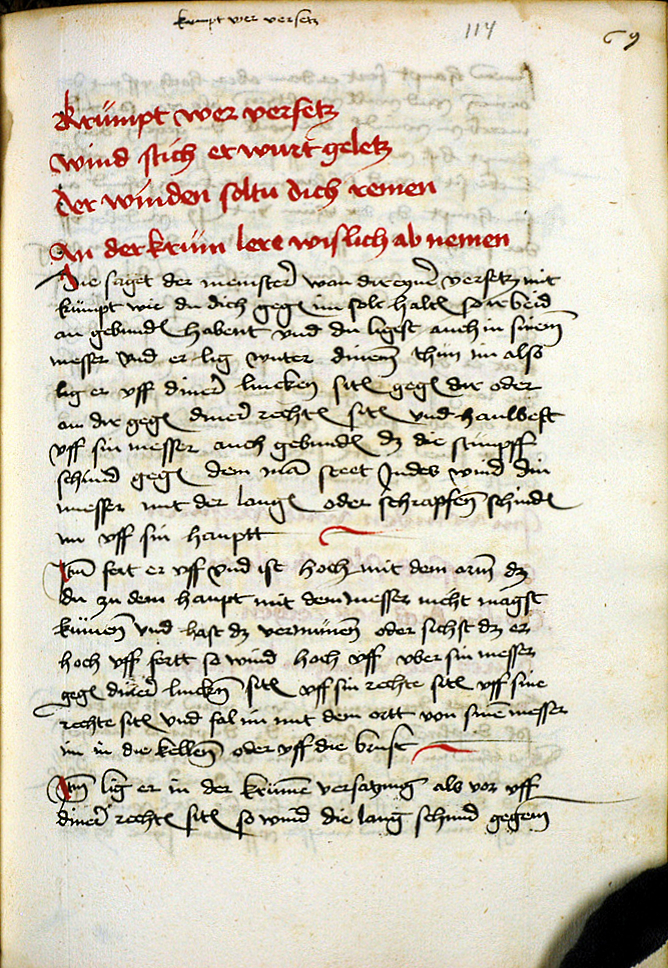 krumpt wer versetz
114
69
Krümpt wer versetz
wind stich er wurt geletz
Der winden soltu dich remen
An der krüm lere wislich ab nemen
Hie saget der meinster wan dir eyner versetz mit
krümpt wie du dich gegen im solt halten so ir beid
an gebunden habent und du ligest auch in sinem
messer und er lig unter dinem thun im also
lig er uff diner lincken siten gegen dir oder
an dir gegen diner rechten siten und haulbest
uff sin messer auch gebunden dz die stumpff
schnid gegen dem man steet Indes wind din
messer mit der langen oder schrapfen schniden
im uff sin hauptt
Item fert er uff und ist hoch mit dem arm dz
du zu dem haupt mit dem messer nicht magst
kümen und hast dz vernümen oder sichst dz er
hoch uff fertt so wind hoch uff uber sin messer
gegen diner lincken siten uff sin rechte siten uff sine
rechte siten und fal im mit dem ortt von sinem messer
im in die kellen oder uff die brust
Item lig er in der krümen versatzung als vor uff
diner rechten siten so wind die lang schnid gegem